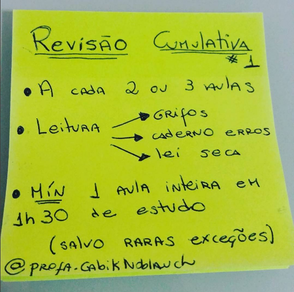 REVISÃO CUMULATIVA
# 1
• A CADA 2 OU 3 AULAS
• LEITURA → GRIFOS
→ CADERNO ERROS
→ lEi SECA
• MÍN 1 AULA INTEIRA EM
1h 30 de ESTUDO
(SALVO RARAS EXCEÇÕES)
@PROFA.GABIKNOBLAUCH